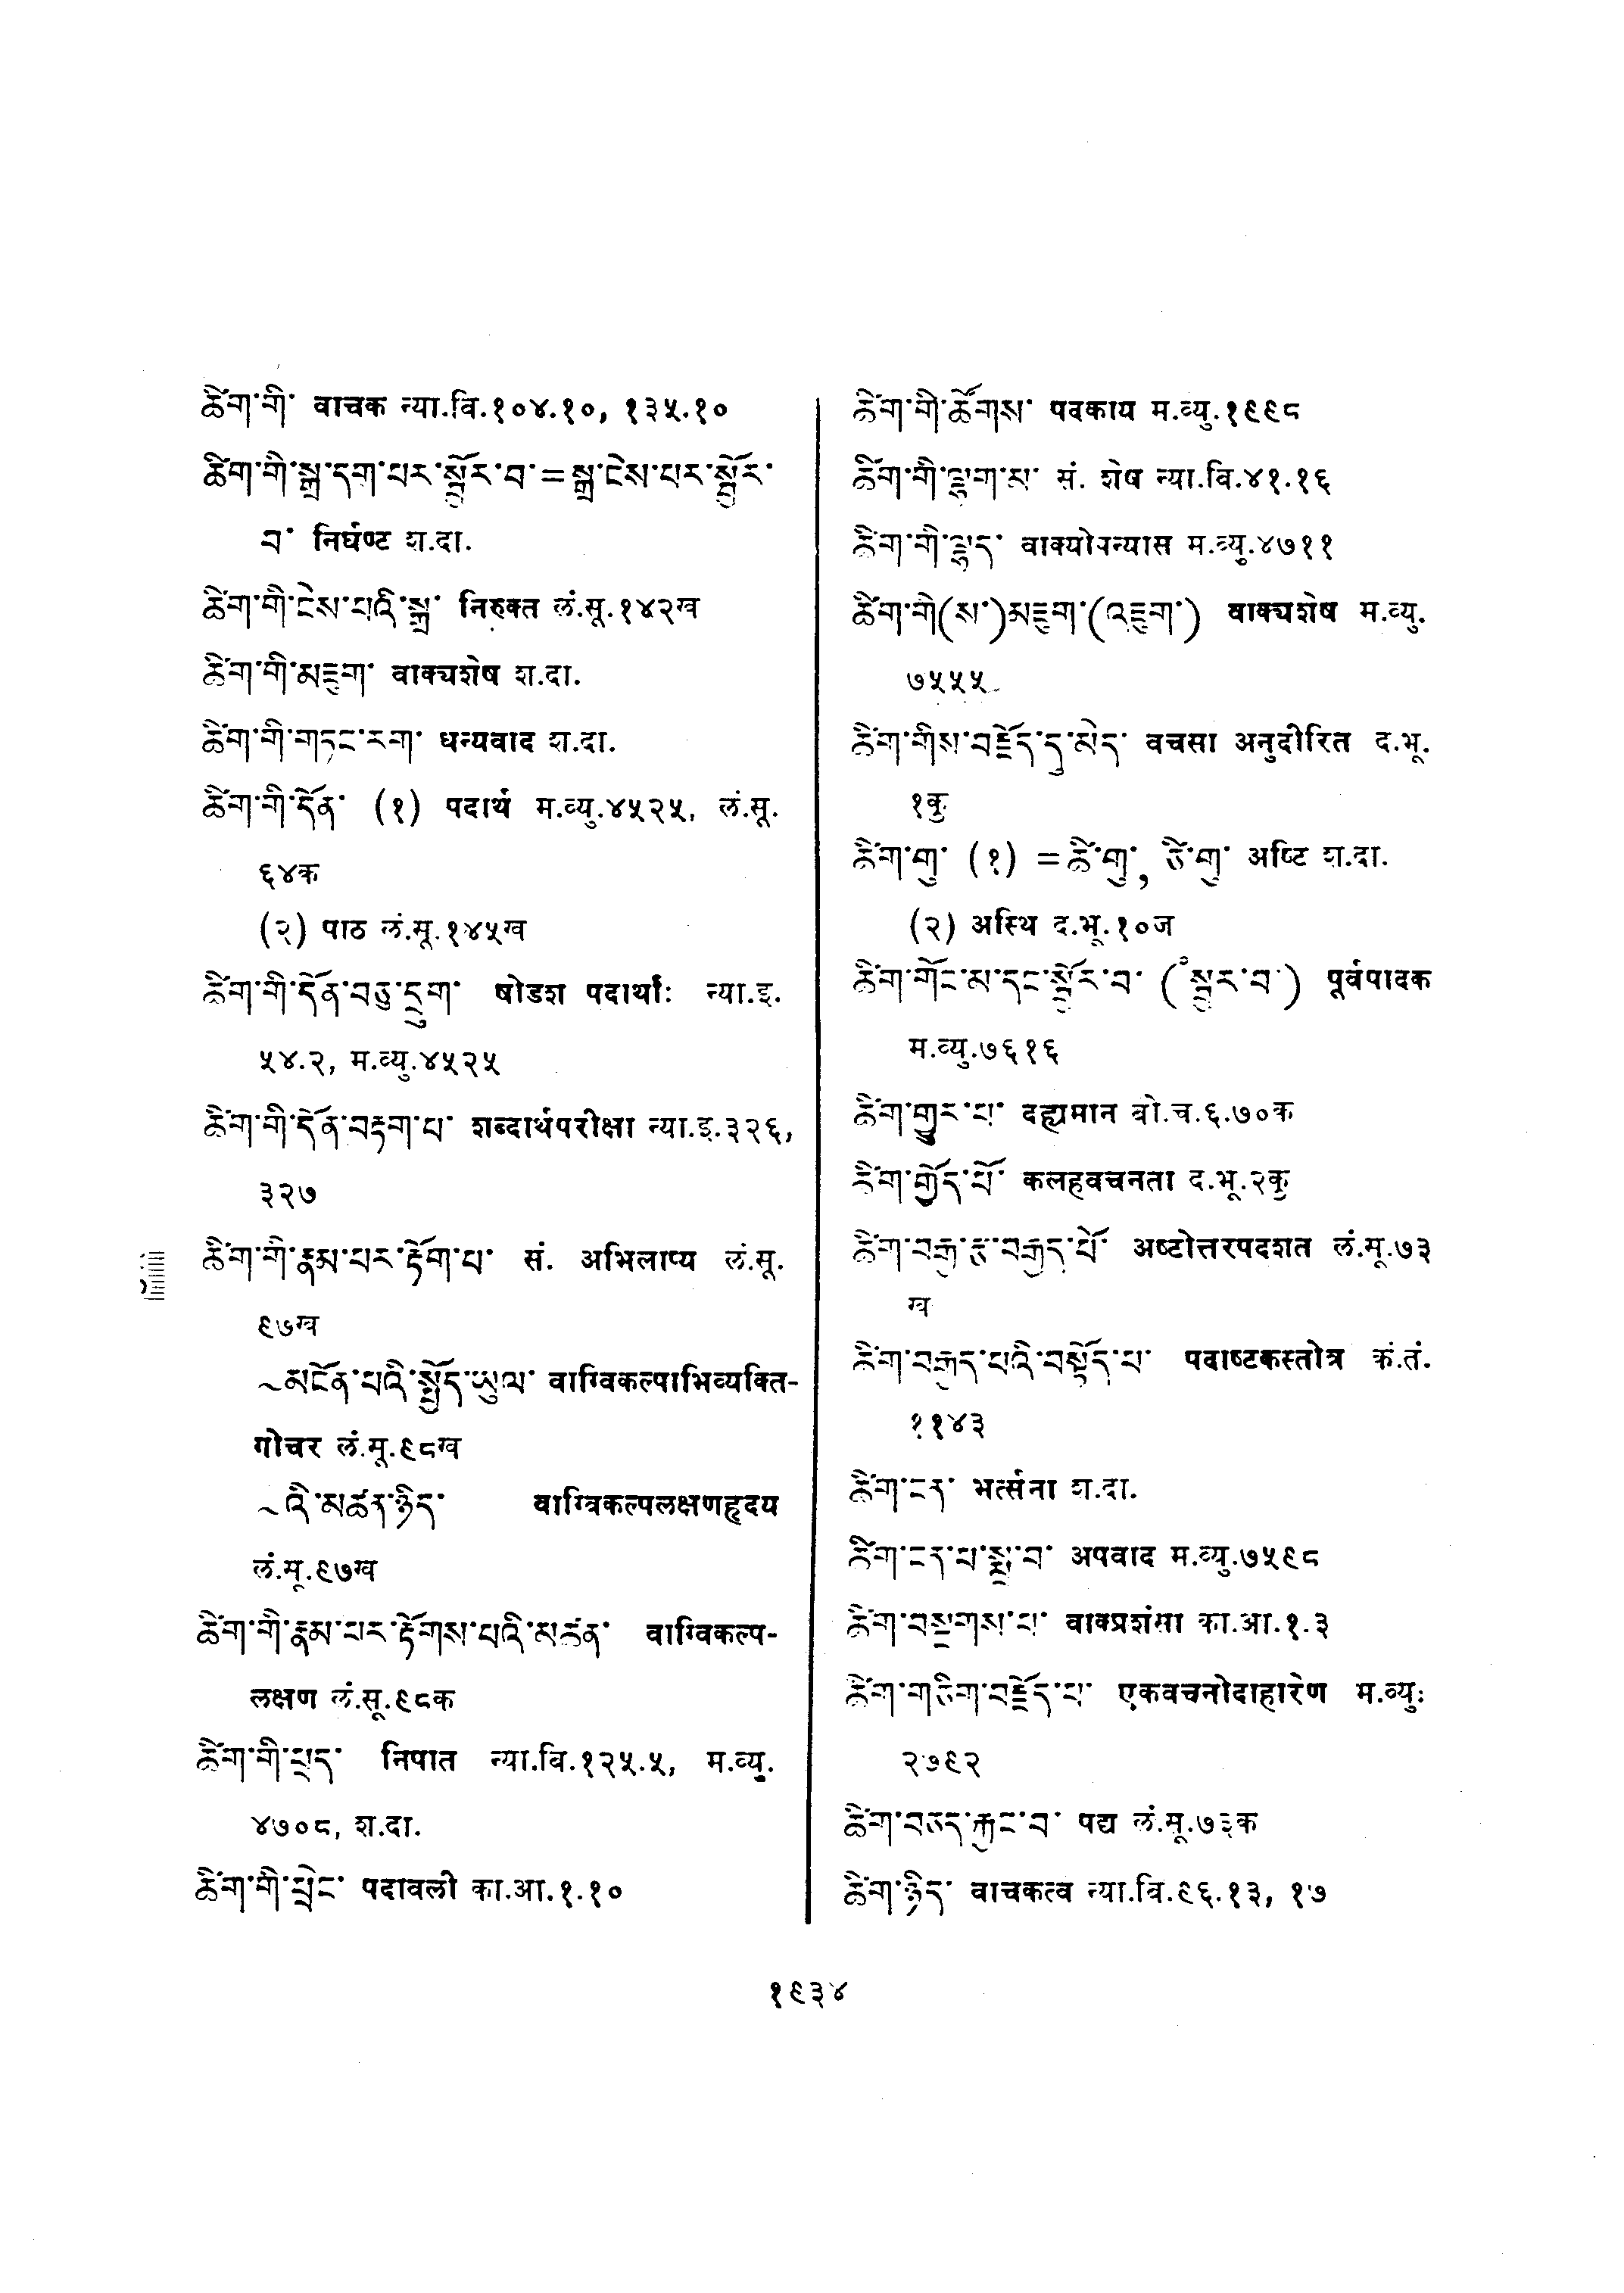 ཚིག་གི་ वाचक न्या.वि.१०४.१०, १३५.१०
ཚིག་གི་སྒྲ་དག་པར་སྦྱོར་བ་=སྒྲ་ངེས་པར་སྦྱོར་
བ་ निर्घण्ट श.दा.
ཚིག་གི་ངེས་པའི་སྒྲ་ निरुक्त लं.सू.१४२ख
ཚིག་གི་མཇུག་ वाक्यशेष श.दा.
ཚིག་གི་གཏང་རག་ धन्यवाद श.दा.
ཚིག་གི་དོན་ (१) पदार्थ म.व्यु.४५२५, लं.सू.
६४क
(२) पाठ लं.सू.१४५ख
ཚིག་གི་དོན་བཅུ་དྲུག་ षोडश पदार्थाः न्या.इ.
५४.२, म.व्यु.४५२५
ཚིག་གི་དོན་བརྟག་པ་ शब्दार्थपरीक्षा न्या.इ.३२६,
३२७
ཚིག་གི་རྣམ་པར་རྟོག་པ་ सं. अभिलाप्य लं.सू.
९७ख
~མངོན་པའི་སྤྱོད་ཡུལ་ वाग्विकल्पाभिव्यक्ति-
गोचर लं.सू.९८ख
~འི་མཚན་ཉིད་ वाग्विकल्पलक्षणहृदय
लं.सू.९७ख
ཚིག་གི་རྣམ་པར་རྟོགས་པའི་མཚན་ वाग्विकल्प-
लक्षण लं.सू.९८क
ཚིག་གི་ཕྲད་ निपात न्या.वि.१२५.५, म.व्यु.
४७०८, श.दा.
ཚིག་གི་ཕྲེང་ पदावली का.आ.१.१०
ཚིག་གི་ཚོགས་ पदकाय म.व्यु.१९९८
ཚིག་གི་ལྷག་མ་ सं. शेष न्या.वि.४१.१६
ཚིག་གི་ལྷད་ वाक्योपन्यास म.व्यु.४७११
ཚིག་གི(ས་)མཇུག་(འཇུག་) वाक्यशेष म.व्यु.
७५५५
ཚིག་གིས་བརྗོད་དུ་མེད་ वचसा अनुदीरित द.भू.
१कु
ཚིག་གུ་ (१) =ཚི་གུ་, ཙི་གུ་ अष्टि श.दा.
(२) अस्थि द.भू.१०ज
ཚིག་གོང་མ་དང་སྦྱོར་བ་ (°སྦྱར་བ་) पूर्वपादक
म.व्यु.७६१६
ཚིག་གྱུར་པ་ दह्यमान बो.च.६.७०क
ཚིག་གྱོད་པོ་ कलहवचनता द.भू.२कु
ཚིག་བརྒྱ་རྩ་བརྒྱད་པོ་ अष्टोत्तरपदशत लं.सू.७३
ख
ཚིག་བརྒྱད་པའི་བསྟོད་པ་ पदाष्टकस्तोत्र कं.तं.
११४३
ཚིག་ངན་ भर्त्सना श.दा.
ཚིག་ངན་པ་སྨྲ་བ་ अपवाद म.व्यु.७५९८
ཚིག་བསྔགས་པ་ वाक्प्रशंसा का.आ.१.३
ཚིག་གཅིག་བརྗོད་པ་ एकवचनोदाहारेण म.व्यु.
२७९२
ཚིག་བཅད་རྐྱང་བ་ पद्य लं.सू.७३क
ཚིག་ཉིད་ वाचकत्व न्या.वि.९६.१३, १७
१९३४